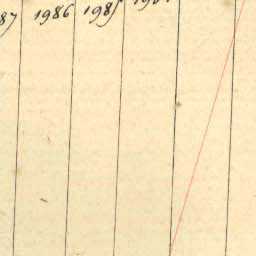 87 1986 1985